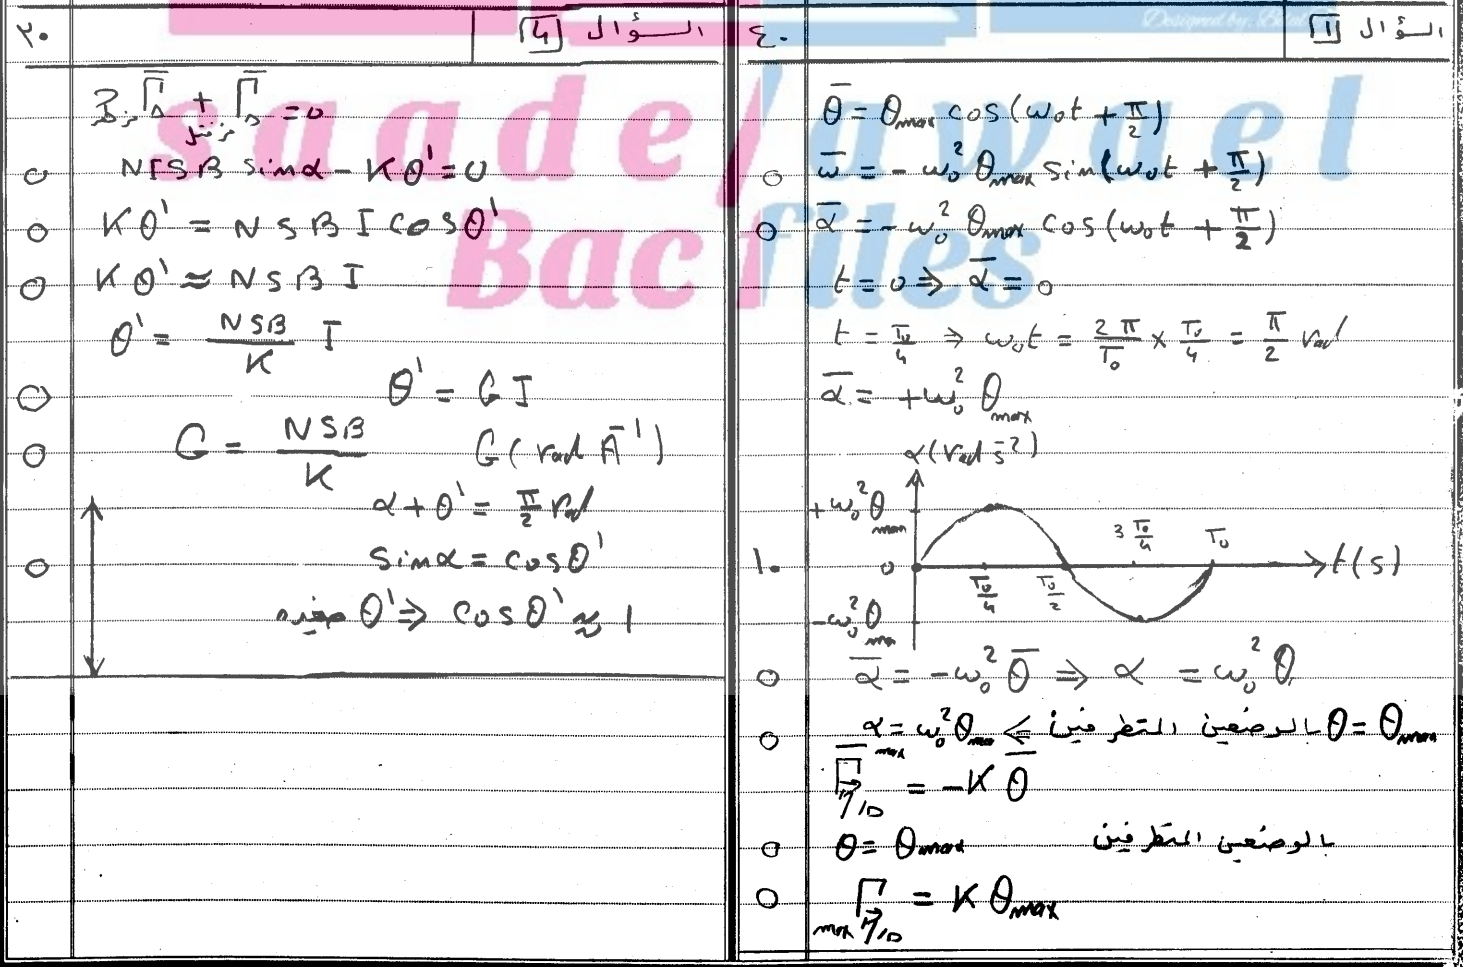 السؤال 1
٤٠
θ̄ = θmax cos(ω₀t + π/2)
ω̄ = - ω₀² θmax sin(ω₀t + π/2)
ᾱ = - ω₀² θmax cos(ω₀t + π/2)
t = 0 ⇒ ᾱ = 0
t = T₀/4 ⇒ ω₀t = 2π/T₀ × T₀/4 = π/2 rad
ᾱ = +ω₀² θmax
α(rad s⁻²)
+ω₀²θmax
3T₀/4 T₀
١٠ 0 t(s)
T₀/4 T₀/2
-ω₀²θmax
ᾱ = -ω₀² θ̄ ⇒ α = ω₀² θ
θ = θmax بالوضعين المتطرفين ⇐ αmax = ω₀²θmax
Γ̄η⃗/Δ = -K θ̄
θ = θmax بالوضعين المتطرفين
maxΓη⃗/Δ = K θmax
السؤال 4
٢٠
Γ̄Δ + Γ̄Δ = 0
NISB sinα - Kθ' = 0
Kθ' = NSBI cosθ'
Kθ' ≈ NSBI
θ' = NSB/K I
θ' = GI
G = NSB/K G(rad A⁻¹)
α + θ' = π/2 rad
sinα = cosθ'
θ' صغيرة ⇒ cosθ' ≈ 1
saade/awael
Bac files
Designed by: